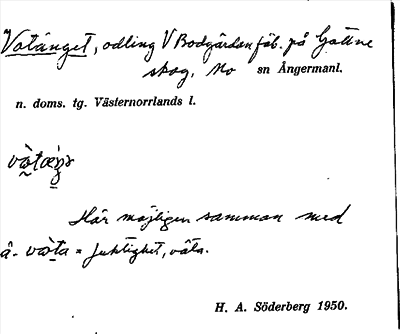 Votänget, odling V Bodgården fäb. på Gottne
skog, Mo sn Ångermanl.
n. doms. tg. Västernorrlands l.
Här möjligen samman med
å- = fuktighet, väta.
H. A. Söderberg 1950.